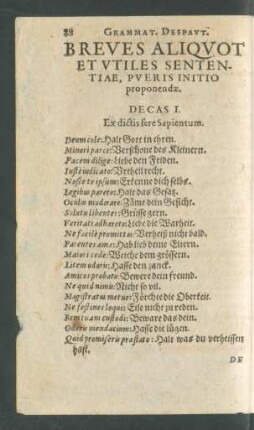 88 GRAMMAT. DESPAVT.
BREVES ALIQVOT
ET VTILES SENTEN-
TIAE, PVERIS INITIO
proponendæ.
DECAS I.
Ex dictis fere Sapientum.
Deum cole: Halt Gott in ehren.
Minori parce: Verschone des Kleinern.
Pacem dilige: Liebe den Friden.
Iustè iudicato: Vrtheil recht.
Nosce te ipsum: Erkenne dich selbs.
Legibus pareto: Halt das Gesätz.
Oculos moderare: Zäme dein Gesicht.
Saluta libenter: Grüsse gern.
Veritati adhæreto: Liebe die Warheit.
Ne facilè promittas: Verheiß nicht bald.
Parentes ama: Hab lieb deine Eltern.
Maiori cede: Weiche dem grössern.
Litem oderis: Hasse den zanck.
Amicos probato: Bewere dein freund.
Ne quid nimis: Nicht so vil.
Magistratum metue: Förchte die Oberkeit.
Ne festines loqui: Eile nicht zu reden.
Rem tuam custodi: Beware das dein.
Oderis mendacium: Hasse die lügen.
Quid promiseris præstato: Halt was du verheissen
hast.
DE